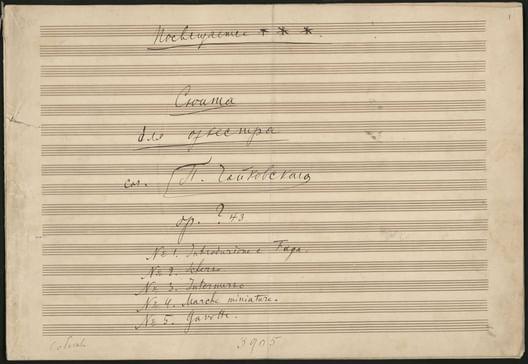 Посвящается ***.
Сюита
для оркестра
соч. П. Чайковскаго
op. ? 43
№ 1. Introduzione e Fuga.
№ 2. Scherzo
№ 3. Intermezzo
№ 4. Marche miniature.
№ 5. Gavotte.
3905
1